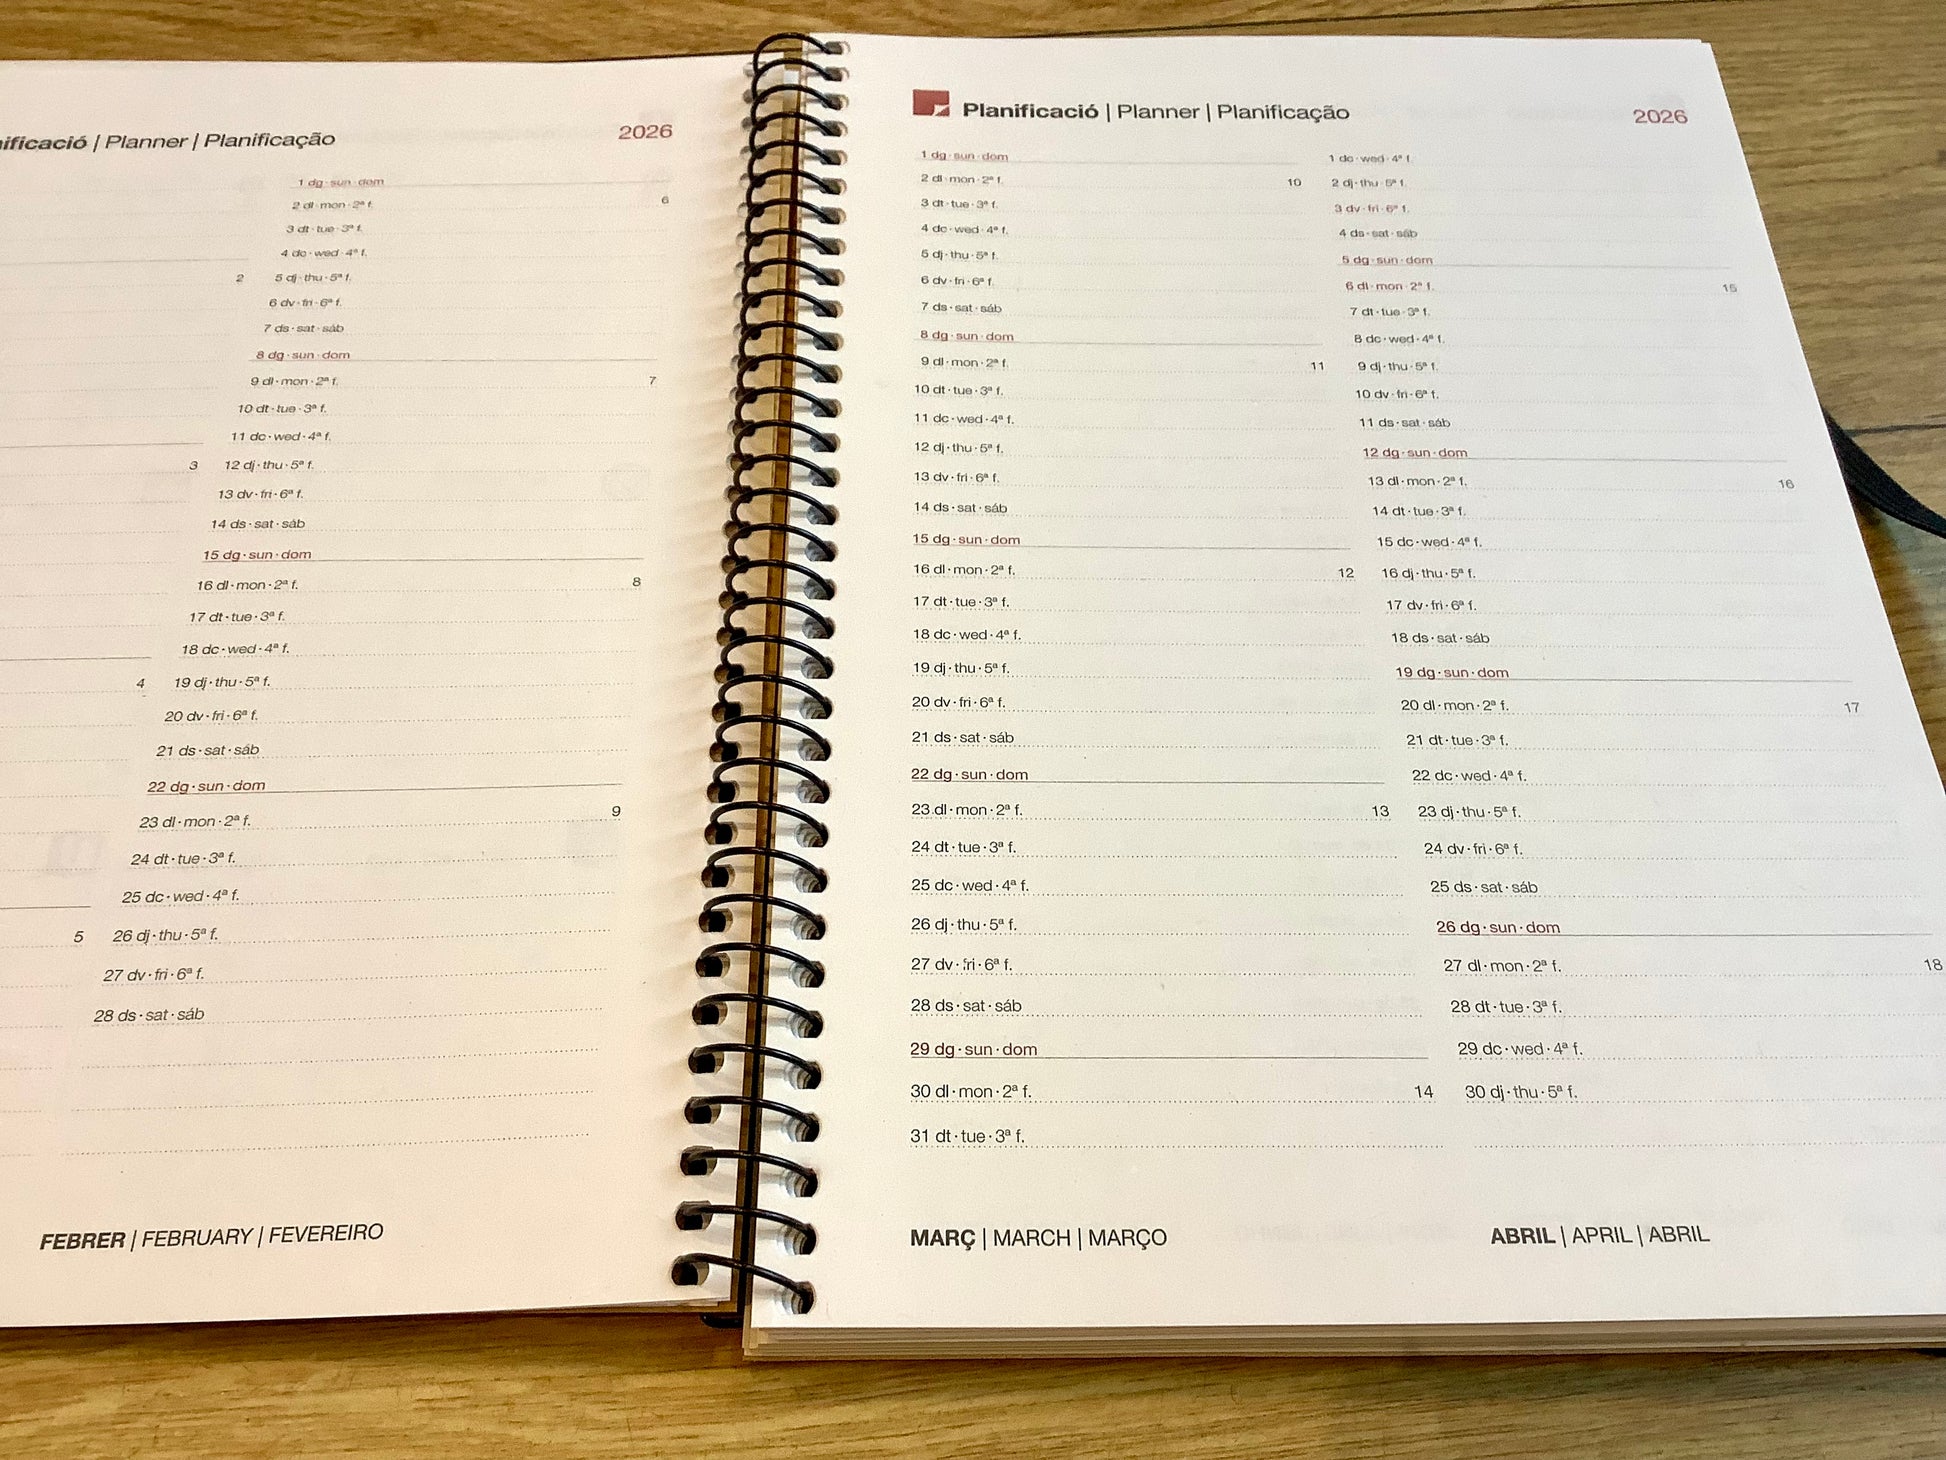 Planificació | Planner | Planificação
2026
1 dg·sun·dom
2 dl·mon·2ª f. 6
3 dt·tue·3ª f.
4 dc·wed·4ª f.
2 5 dj·thu·5ª f.
6 dv·fri·6ª f.
7 ds·sat·sáb
8 dg·sun·dom
9 dl·mon·2ª f. 7
10 dt·tue·3ª f.
11 dc·wed·4ª f.
3 12 dj·thu·5ª f.
13 dv·fri·6ª f.
14 ds·sat·sáb
15 dg·sun·dom
16 dl·mon·2ª f. 8
17 dt·tue·3ª f.
18 dc·wed·4ª f.
4 19 dj·thu·5ª f.
20 dv·fri·6ª f.
21 ds·sat·sáb
22 dg·sun·dom
23 dl·mon·2ª f. 9
24 dt·tue·3ª f.
25 dc·wed·4ª f.
5 26 dj·thu·5ª f.
27 dv·fri·6ª f.
28 ds·sat·sáb
FEBRER | FEBRUARY | FEVEREIRO
Planificació | Planner | Planificação
2026
1 dg·sun·dom
2 dl·mon·2ª f. 10
3 dt·tue·3ª f.
4 dc·wed·4ª f.
5 dj·thu·5ª f.
6 dv·fri·6ª f.
7 ds·sat·sáb
8 dg·sun·dom
9 dl·mon·2ª f. 11
10 dt·tue·3ª f.
11 dc·wed·4ª f.
12 dj·thu·5ª f.
13 dv·fri·6ª f.
14 ds·sat·sáb
15 dg·sun·dom
16 dl·mon·2ª f. 12
17 dt·tue·3ª f.
18 dc·wed·4ª f.
19 dj·thu·5ª f.
20 dv·fri·6ª f.
21 ds·sat·sáb
22 dg·sun·dom
23 dl·mon·2ª f. 13
24 dt·tue·3ª f.
25 dc·wed·4ª f.
26 dj·thu·5ª f.
27 dv·fri·6ª f.
28 ds·sat·sáb
29 dg·sun·dom
30 dl·mon·2ª f. 14
31 dt·tue·3ª f.
MARÇ | MARCH | MARÇO
1 dc·wed·4ª f.
2 dj·thu·5ª f.
3 dv·fri·6ª f.
4 ds·sat·sáb
5 dg·sun·dom
6 dl·mon·2ª f. 15
7 dt·tue·3ª f.
8 dc·wed·4ª f.
9 dj·thu·5ª f.
10 dv·fri·6ª f.
11 ds·sat·sáb
12 dg·sun·dom
13 dl·mon·2ª f. 16
14 dt·tue·3ª f.
15 dc·wed·4ª f.
16 dj·thu·5ª f.
17 dv·fri·6ª f.
18 ds·sat·sáb
19 dg·sun·dom
20 dl·mon·2ª f. 17
21 dt·tue·3ª f.
22 dc·wed·4ª f.
23 dj·thu·5ª f.
24 dv·fri·6ª f.
25 ds·sat·sáb
26 dg·sun·dom
27 dl·mon·2ª f. 18
28 dt·tue·3ª f.
29 dc·wed·4ª f.
30 dj·thu·5ª f.
ABRIL | APRIL | ABRIL